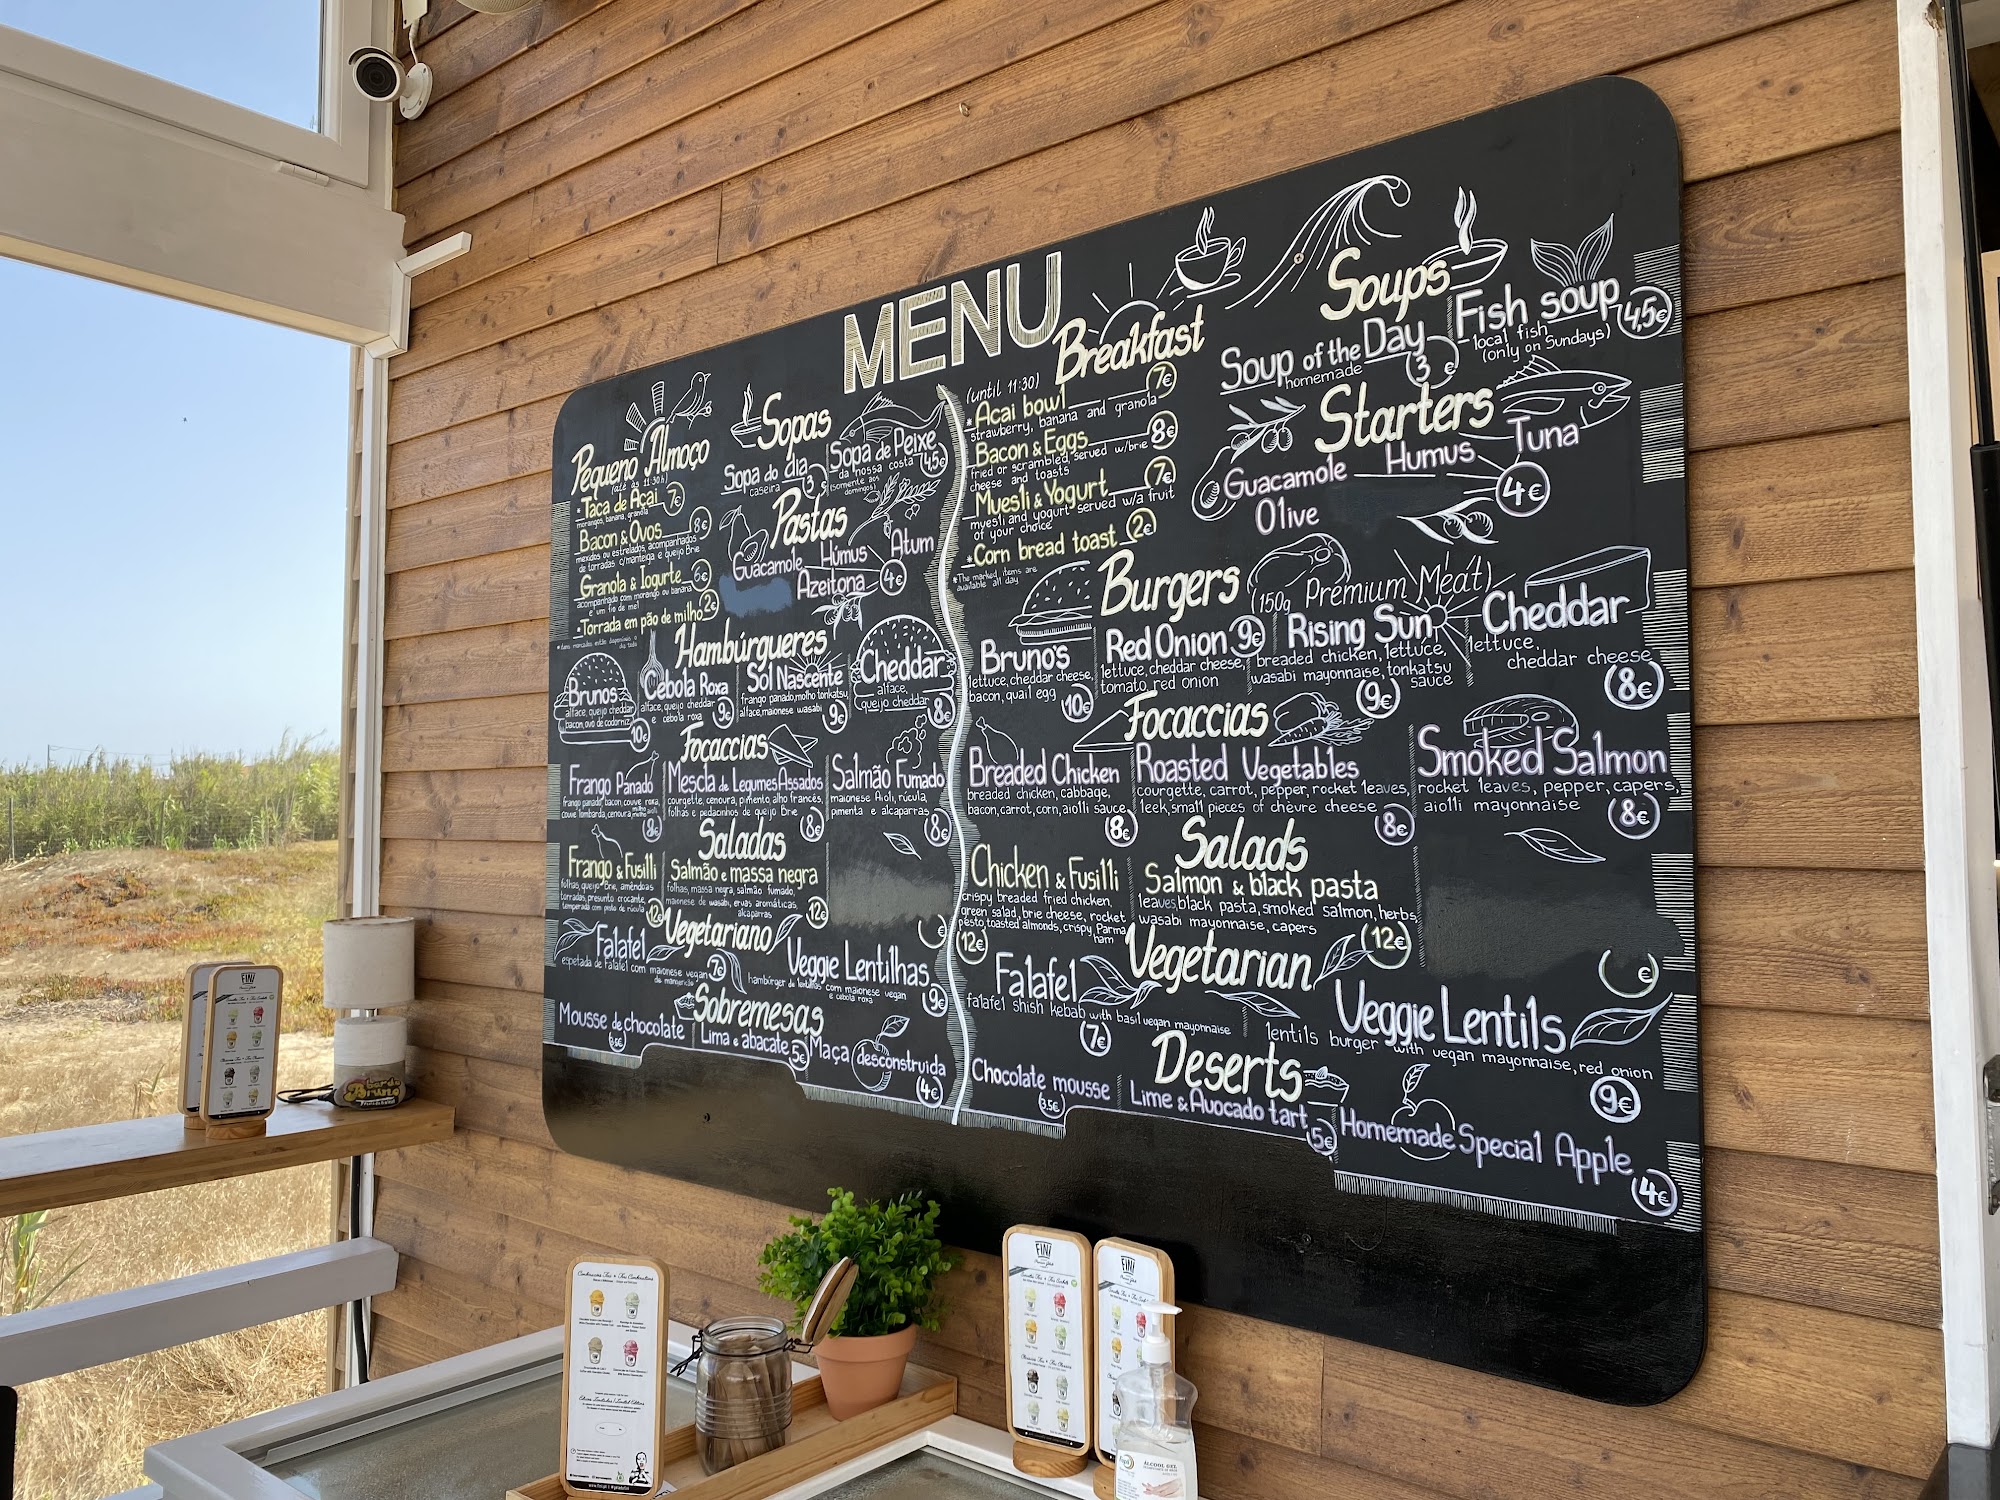 MENU
Pequeno Almoço
(até às 11:30h)
*Taça de Açai 7€
morangos, banana, granola
Bacon & Ovos 8€
mexidos ou estrelados, acompanhados
de torradas c/manteiga e queijo Brie
Granola & Iogurte 6€
acompanhado com morango ou banana
e um fio de mel
*Torrada em pão de milho 2€
Sopas
Sopa do dia 3€
caseira
Sopa de Peixe 4,5€
da nossa costa
(somente aos
domingos)
Pastas
Guacamole Húmus Atum
Azeitona 4€
Hambúrgueres
Brunos
alface, queijo cheddar
bacon, ovo de codorniz
10€
Cebola Roxa
alface, queijo cheddar
e cebola roxa 9€
Sol Nascente
frango panado, molho tonkatsu,
alface, maionese wasabi 9€
Cheddar
alface,
queijo cheddar 8€
Focaccias
Frango Panado
frango panado, bacon, couve roxa,
couve lombarda, cenoura, molho aioli 8€
Mescla de Legumes Assados
courgette, cenoura, pimento, alho francês,
folhas e pedacinhos de queijo Brie 8€
Salmão Fumado
maionese Aioli, rúcula,
pimenta e alcaparras 8€
Saladas
Frango & Fusilli
folhas, queijo Brie, amêndoas
torradas, presunto crocante,
temperada com pesto de rúcula 12€
Salmão e massa negra
folhas, massa negra, salmão fumado,
maionese de wasabi, ervas aromáticas,
alcaparras 12€
€
Vegetariano
Falafel
espetada de falafel com maionese vegan
de manjericão 7€
Veggie Lentilhas
hambúrger de lentilhas com maionese vegan
e cebola roxa 9€
Sobremesas
Mousse de chocolate
3.5€
Lima e abacate 5€
Maça desconstruida
4€
(until 11:30) Breakfast
*Acai bowl 7€
strawberry, banana and granola
Bacon & Eggs 8€
fried or scrambled, served w/brie
cheese and toasts
Muesli & Yogurt 7€
myesli and yogurt served w/a fruit
of your choice
*Corn bread toast 2€
*The marked items are
available all day
Soups
Soup of the Day
homemade 3€
Fish soup 4,5€
local fish
(only on Sundays)
Starters
Guacamole Humus Tuna
Olive 4€
Burgers
(150g Premium Meat)
Bruno's
lettuce, cheddar cheese,
bacon, quail egg 10€
Red Onion 9€
lettuce, cheddar cheese,
tomato, red onion
Rising Sun
breaded chicken, lettuce,
wasabi mayonnaise, tonkatsu
sauce
9€
Cheddar
lettuce,
cheddar cheese
8€
Focaccias
Breaded Chicken
breaded chicken, cabbage,
bacon, carrot, corn, aiolli sauce
8€
Roasted Vegetables
courgette, carrot, pepper, rocket leaves,
leek, small pieces of chèvre cheese 8€
Smoked Salmon
rocket leaves, pepper, capers,
aiolli mayonnaise 8€
Salads
Chicken & Fusilli
crispy breaded fried chicken,
green salad, brie cheese, rocket
pesto, toasted almonds, crispy Parma
ham
12€
Salmon & black pasta
leaves, black pasta, smoked salmon, herbs,
wasabi mayonnaise, capers
12€
€
Vegetarian
Falafel
falafel shish kebab with basil vegan mayonnaise
7€
Veggie Lentils
lentils burger with vegan mayonnaise, red onion
9€
Deserts
Chocolate mousse
3.5€
Lime & Avocado tart
5€
Homemade Special Apple
4€
FINI
bar do
Bruno
FINI
FINI
ALCOOL GEL